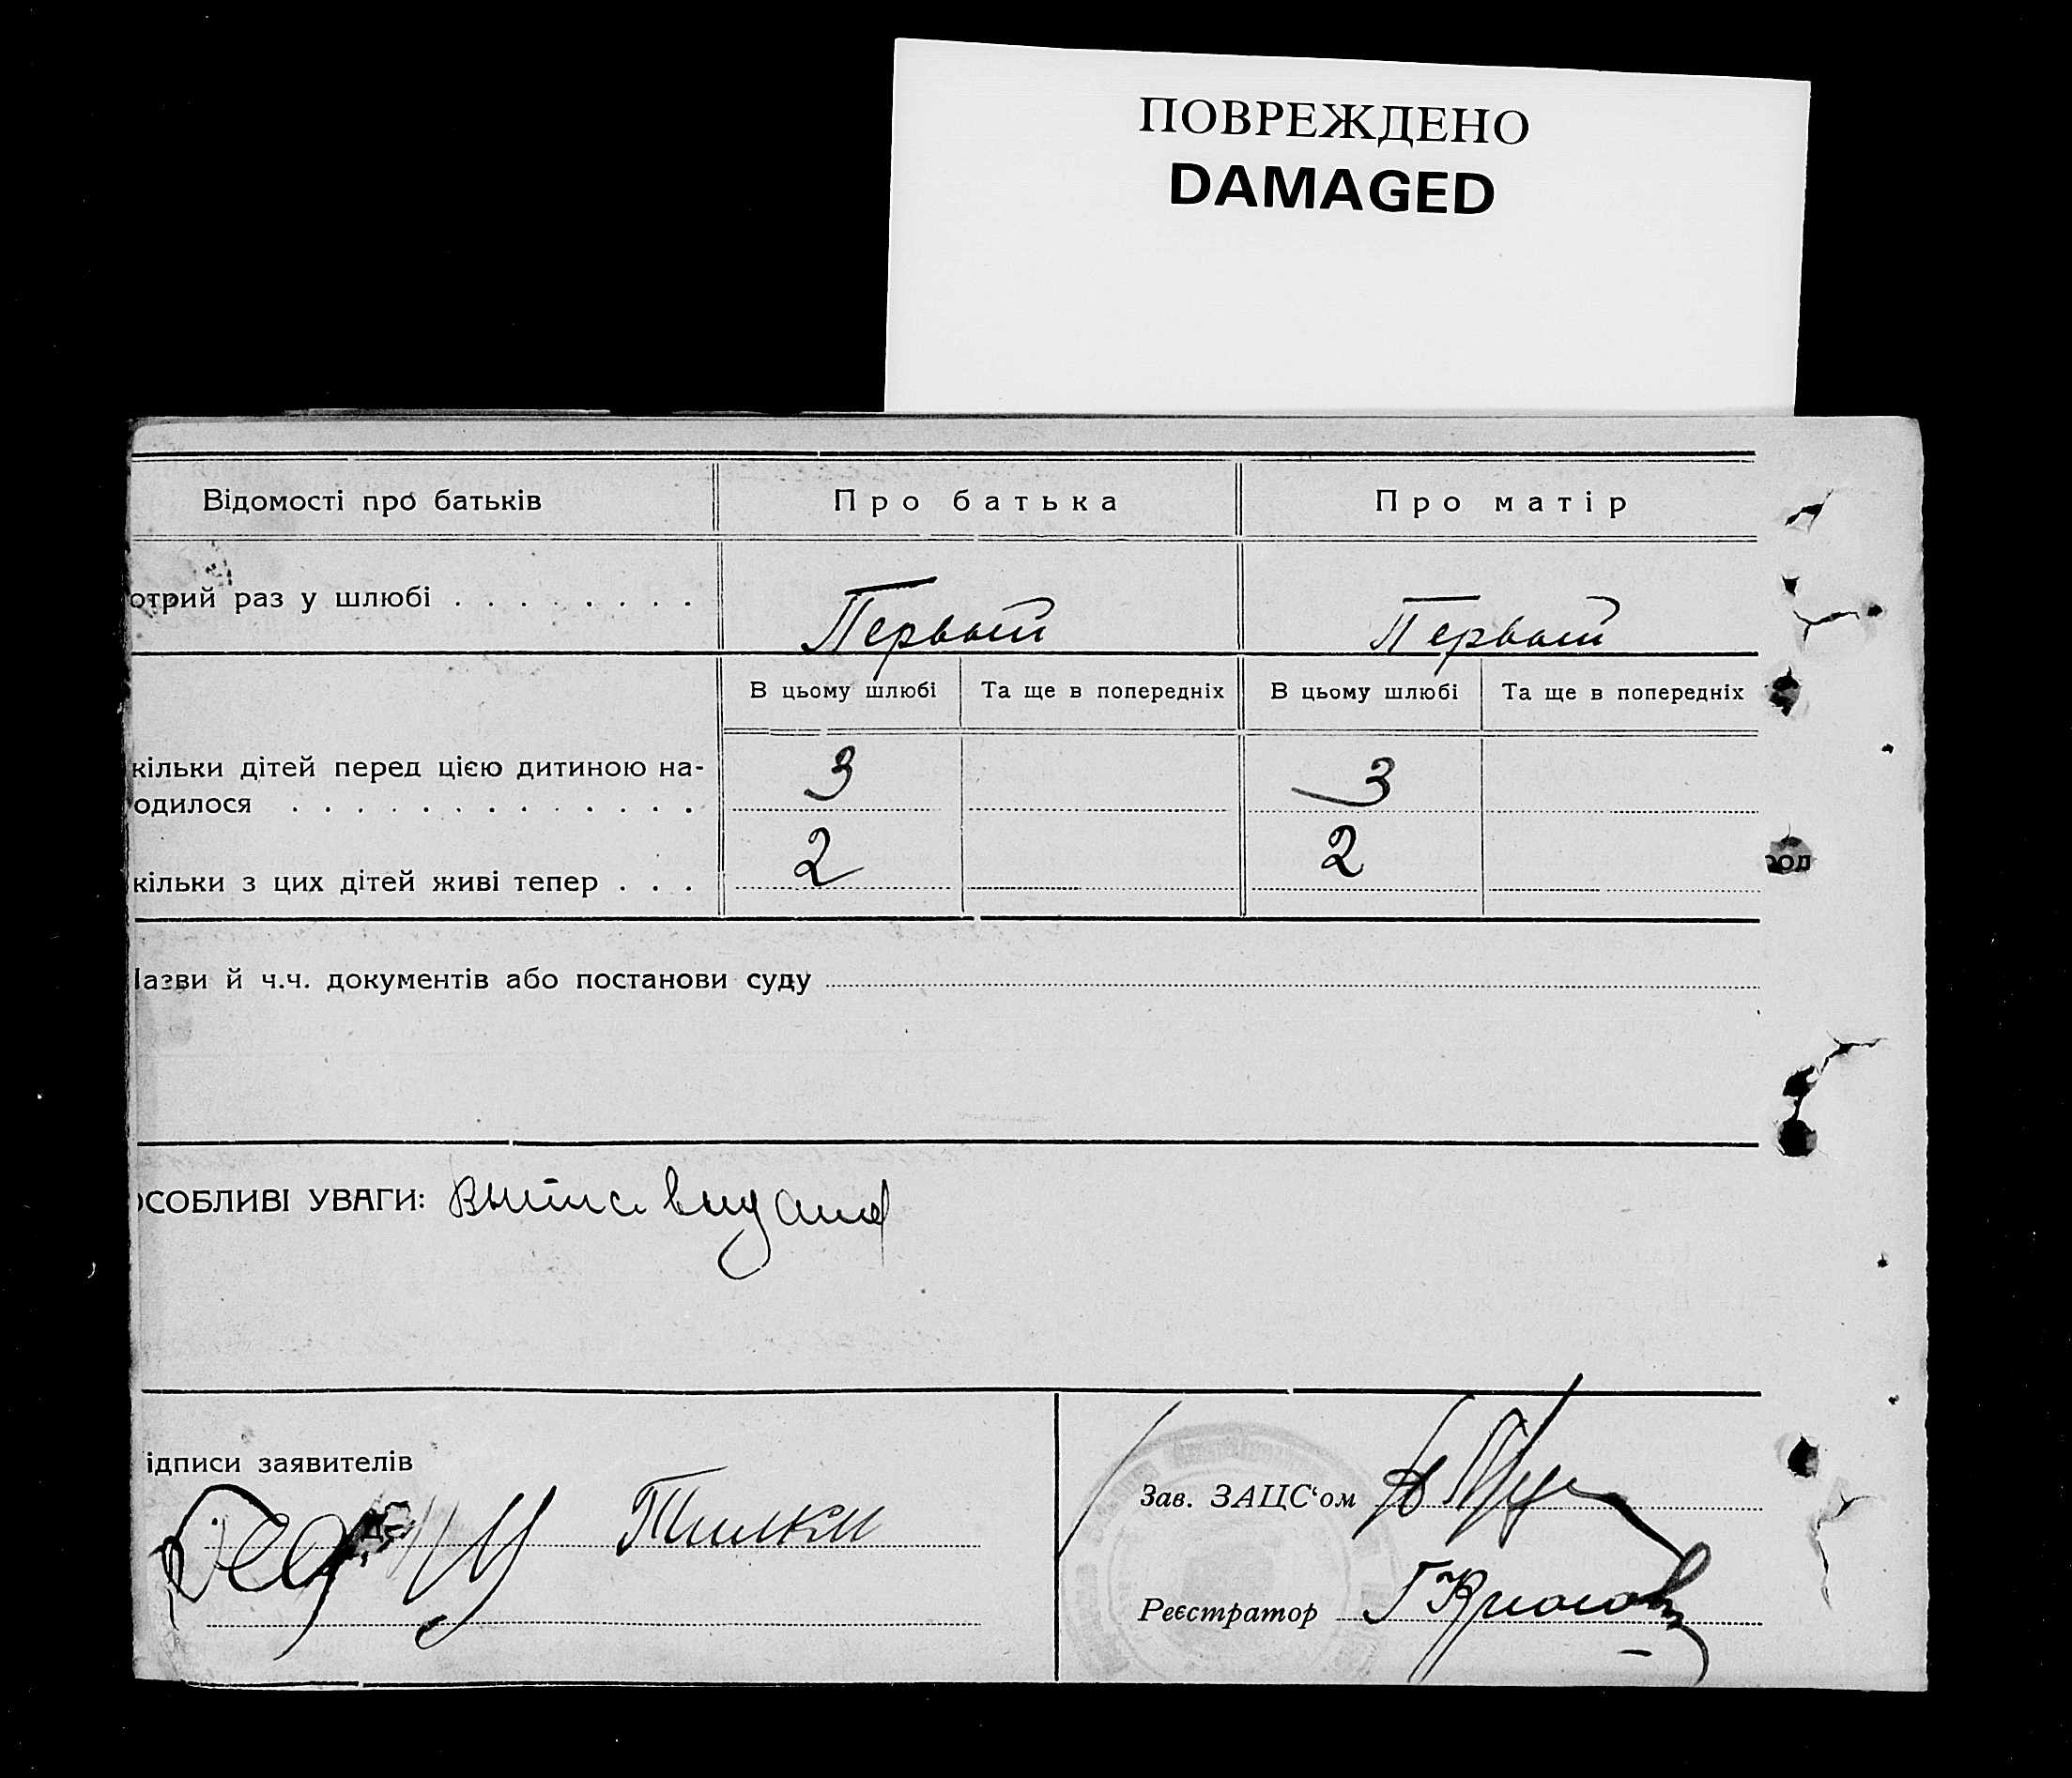 ПОВРЕЖДЕНО
DAMAGED
Відомості про батьків Про батька Про матір
отрий раз у шлюбі . . . . . . . . Первый Первый
В цьому шлюбі Та ще в попередніх В цьому шлюбі Та ще в попередніх
кільки дітей перед цією дитиною на- 3 3
одилося . . . . . . . . . . . . .
кільки з цих дітей живі тепер . . . 2 2
род
Назви й ч.ч. документів або постанови суду
ОСОБЛИВІ УВАГИ: Выпис видана
ідписи заявителів
Зав. ЗАЦС‘ом
Реєстратор